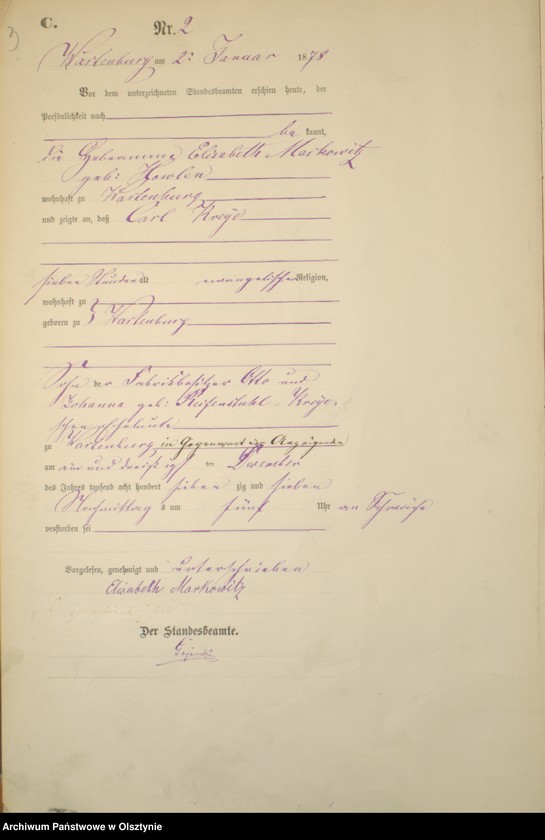 C.
Nr. 2
Wartenburg am 2. Januar 1878
Vor dem unterzeichneten Standesbeamten erschien heute, der
Persönlichkeit nach
be kannt,
die Hebamme Elisabeth Markowitz
geb:
wohnhaft zu Wartenburg
und zeigte an, daß Carl Kreye
sieben Stunden alt evangelischer Religion,
wohnhaft zu
geboren zu Wartenburg
Sohn der Fabrikbesitzer Otto und
Johanna geb: Reifenstuhl - Kreye
schen Eheleute
zu Wartenburg in Gegenwart der Anzeigenden
am ein und dreißigsten Dezember
des Jahres tausend acht hundert sieben zig und sieben
Nachmittag s um fünf Uhr an Schwäche
verstorben sei
Vorgelesen, genehmigt und unterschrieben
Elisabeth Markowitz
Der Standesbeamte.
Archiwum Państwowe w Olsztynie